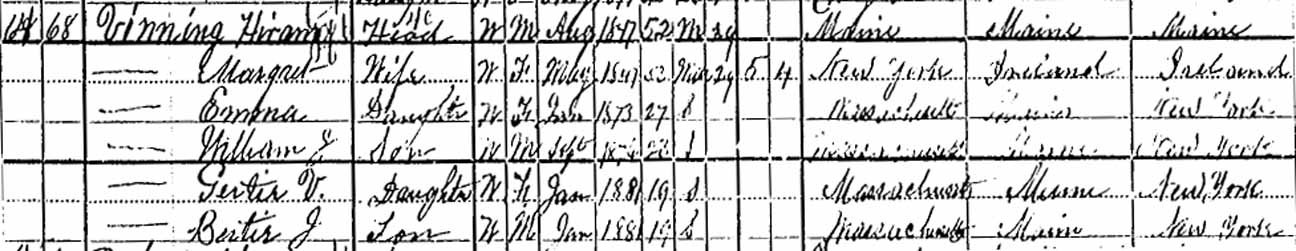 64 68 Vinning Hiram Head W M Aug 1847 52 M 29 Maine Maine Maine
— Margret Wife W F May 1847 52 M 29 5 4 New York Ireland Ireland
— Emma Daughter W F Jan 1873 27 S Massachusetts Maine New York
— William J Son W M Sept S Massachusetts Maine New York
— Gertie V. Daughter W F Jan 1881 19 S Massachusetts Maine New York
— Bertie J Son W M Jan 1881 19 S Massachusetts Maine New York